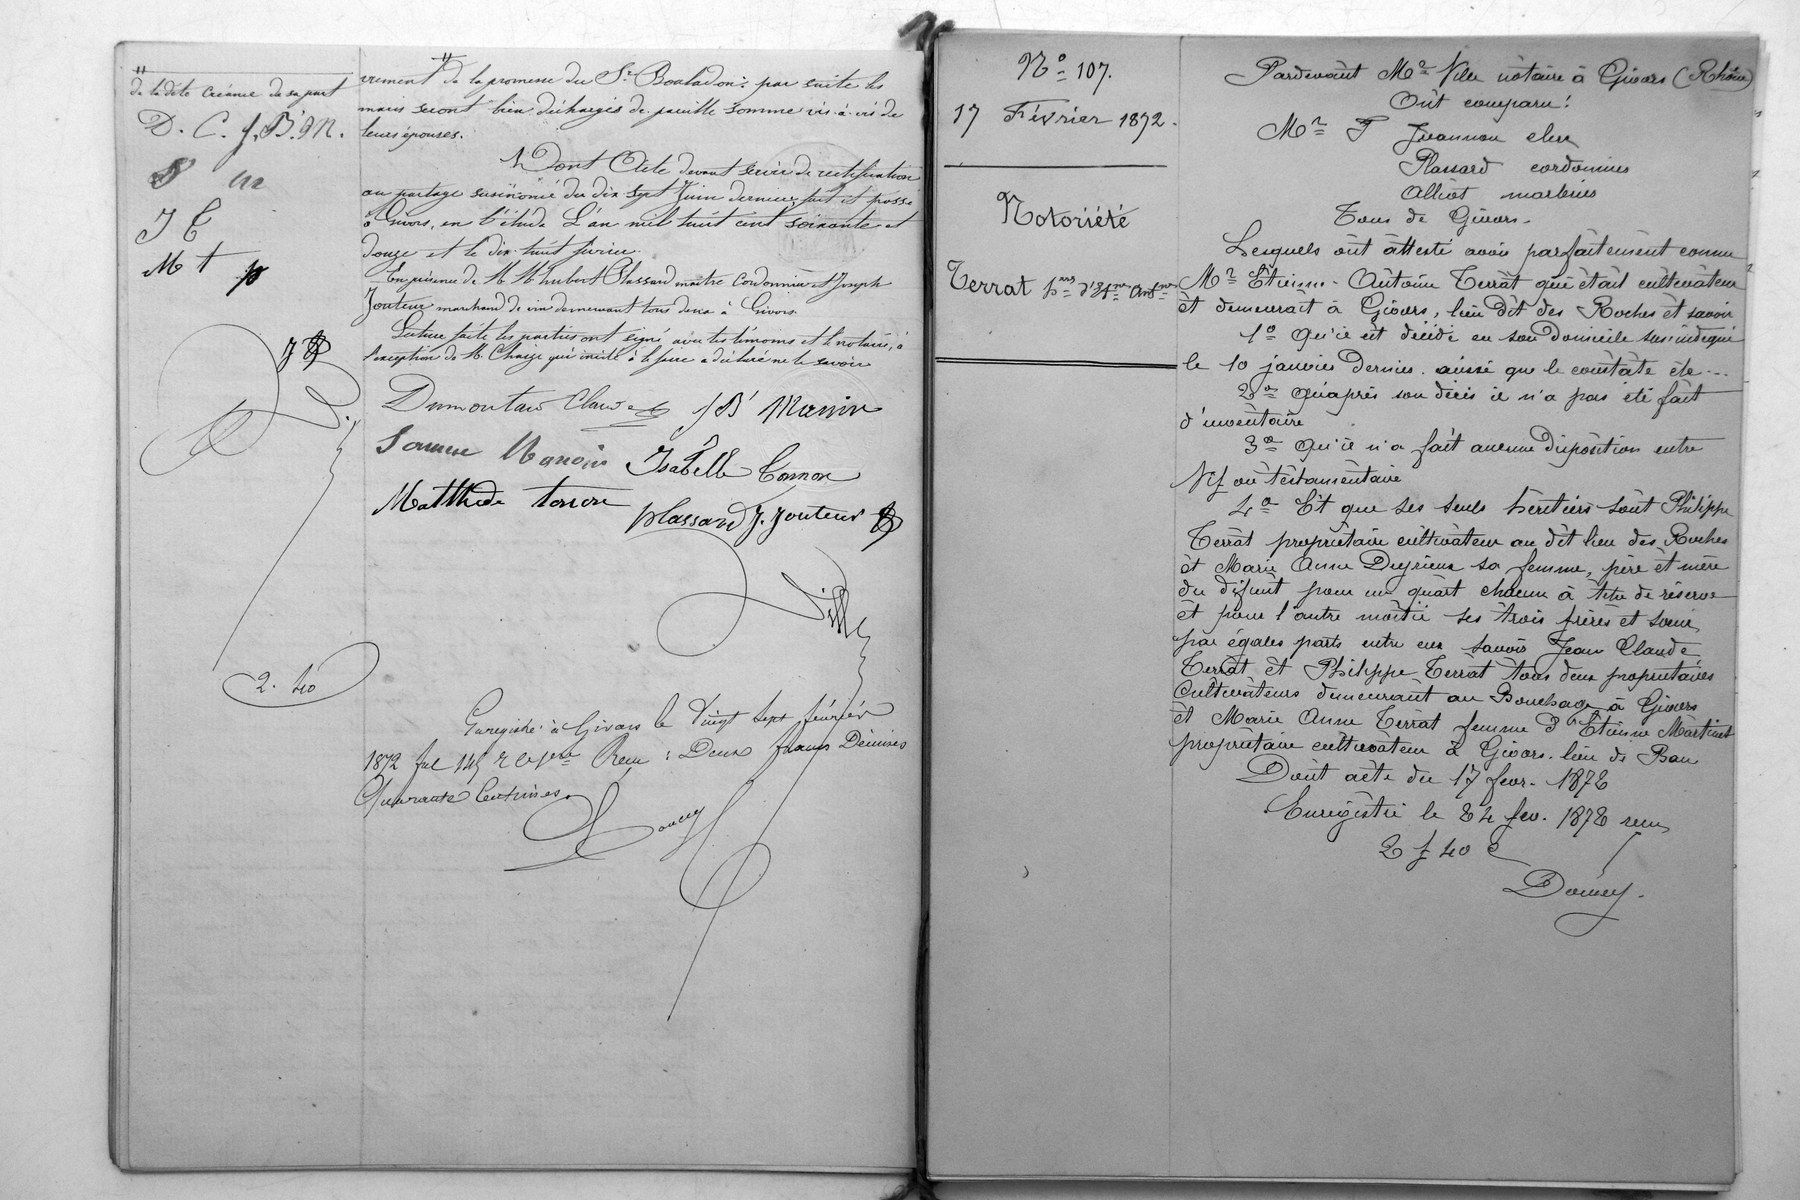 "
de la dite créance de sa part
D. C. J. B. M.
J C
M t p
vrement " de la promesse du Sr Bouladon : par suite les
maris seront bien déchargés de pareille somme vis-à-vis de
leurs épouses.
Dont Acte devant servir de rectification
au partage susénoncé du dix sept Juin dernier, fait et passé
à Givors, en l'étude L'an mil huit cent soixante et
douze et le dix huit février.
En présence de M. M. hubert Plassard maître Cordonnier et Joseph
Jouteur marchand de vin demeurant tous deux à Givors
Lecture faite les parties ont signé avec les témoins et le notaire, à
l'exception de M. Chaize qui invité à le faire a déclaré ne le savoir
Dumontau Claude J B Manin
Manoin Isabelle Tonron
Matthilde tonron plassard J. Jouteur
Ville
2. 40
Enregistré à Givors le Vingt sept février
1872 fol 145 Reçu : Deux francs Décimes
Quarante Centimes.
Doucey
No 107.
17 Février 1872.
Notoriété
Terrat hers d'Etne Antne
Pardevant Me Ville notaire à Givors (Rhône)
Ont comparu :
Mr F Jeannon clerc
Plassard cordonnier
Alliot marbrier
Tous de Givors.
Lesquels ont attesté avoir parfaitement connu
Mr Etienne-Antoine Terrat qui était cultivateur
et demeurait à Givors, lieu dit des Roches et savoir
1o Qu'il est décédé en son Domicile sus indiqué
le 10 janvier Dernier ainsi que le constate etc...
2o Qu'après son décès il n'a pas été fait
d'inventaire
3o Qu'il n'a fait aucune Disposition entre
Vifs ou testamentaire
4o Et que ses seuls héritiers sont Philippe
Terrat propriétaire cultivateur au dit lieu des Roches
et Marie Anne Deyrieux sa femme, père et mère
du défunt pour un quart chacun à titre de réserve
et pour l'autre moitié ses trois frères et soeur
par égales parts entre eux savoir Jean Claude
Terrat et Philippe Terrat tous deux propriétaires
Cultivateurs demeurant au Bouchage à Givors
et Marie Anne Terrat femme d'Etienne Martinet
propriétaire cultivateur à Givors lieu de Ban
Dont acte du 17 fevr. 1872
Enregistré le 24 fev. 1872 reçu
2 f 40 c
Doucey.